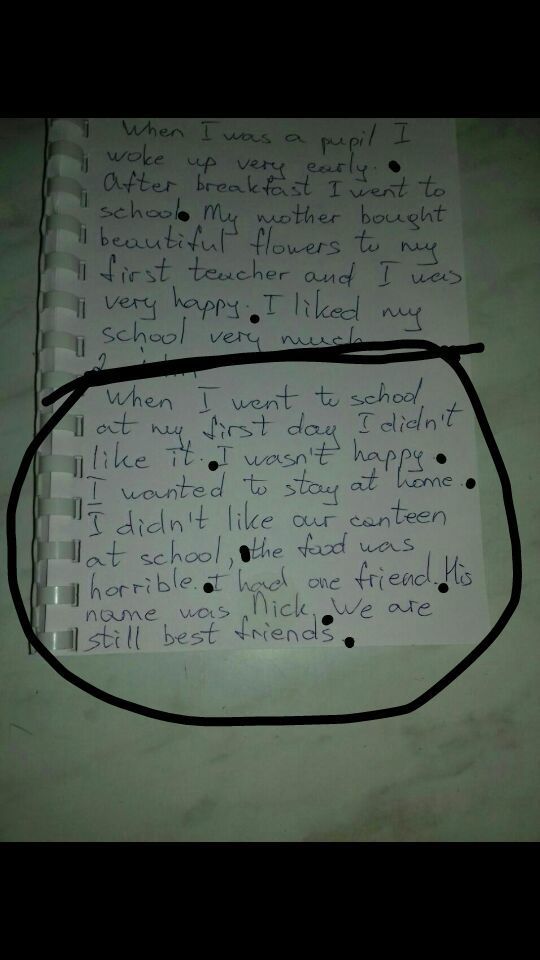 When I was a pupil I
woke up very early.
After breakfast I went to
school. My mother bought
beautiful flowers to my
first teacher and I was
very happy. I liked my
school very much
When I went to school
at my first day I didn't
like it. I wasn't happy.
I wanted to stay at home.
I didn't like our canteen
at school, the food was
horrible. I had one friend. His
name was Nick. We are
still best friends.